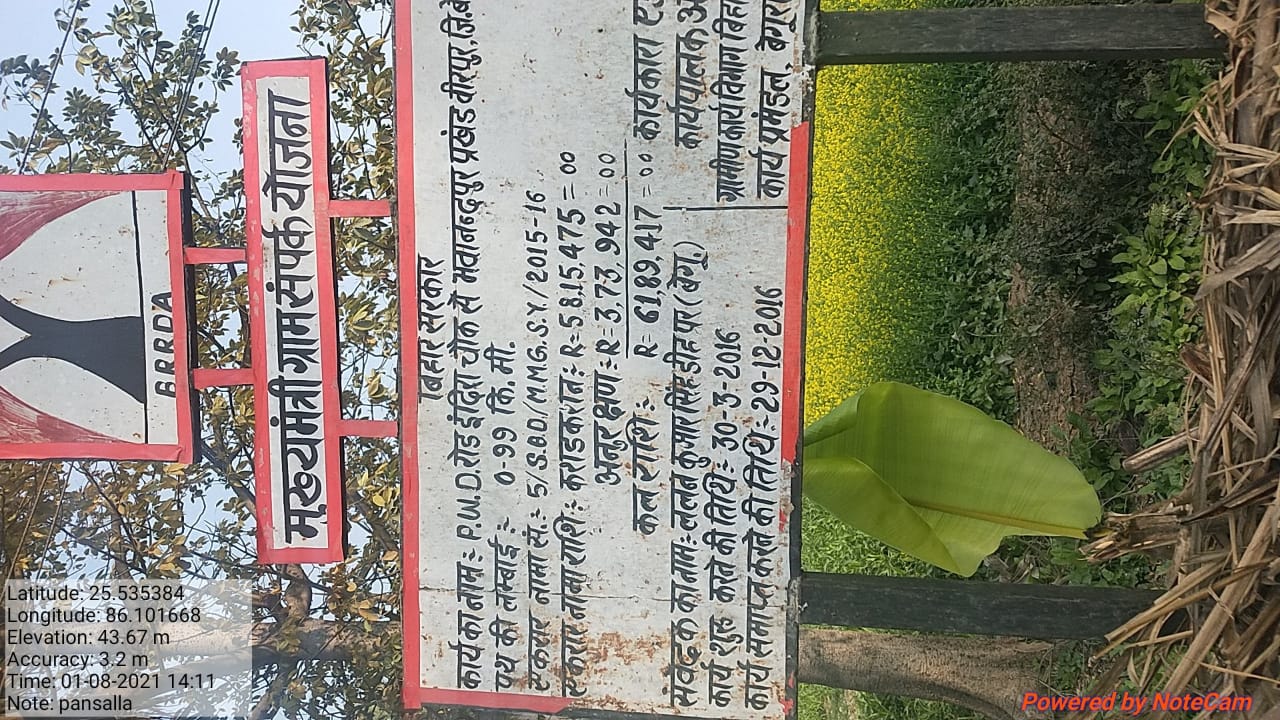 BRRDA
मुख्यमंत्री ग्राम संपर्क योजना
बिहार सरकार
कार्य का नाम:- P.W.D. रोड इंदिरा चौक से भवानन्दपुर प्रखंड वीरपुर, जि.
पथ की लम्बाई:- 0-99 कि. मी.
एकरार नामा सं.:- 5/S.B.D/M.M.G.S.Y/2015-16
एकरार नामा राशि:- करारकरात:- R= 58,15,475=00
अनुरक्षण:- R= 3,73,942=00
कुल राशि:- R= 61,89,417=00
संवेदक का नाम:- ललन कुमार सिंह डीहपर (बेगू.)
कार्य शुरू करने की तिथि:- 30-3-2016
कार्य समाप्त करने की तिथि:- 29-12-2016
कार्यकारी
कार्यपालक
ग्रामीण कार्य विभाग
कार्य प्रमंडल,
Latitude: 25.535384
Longitude: 86.101668
Elevation: 43.67 m
Accuracy: 3.2 m
Time: 01-08-2021 14:11
Note: pansalla
Powered by NoteCam